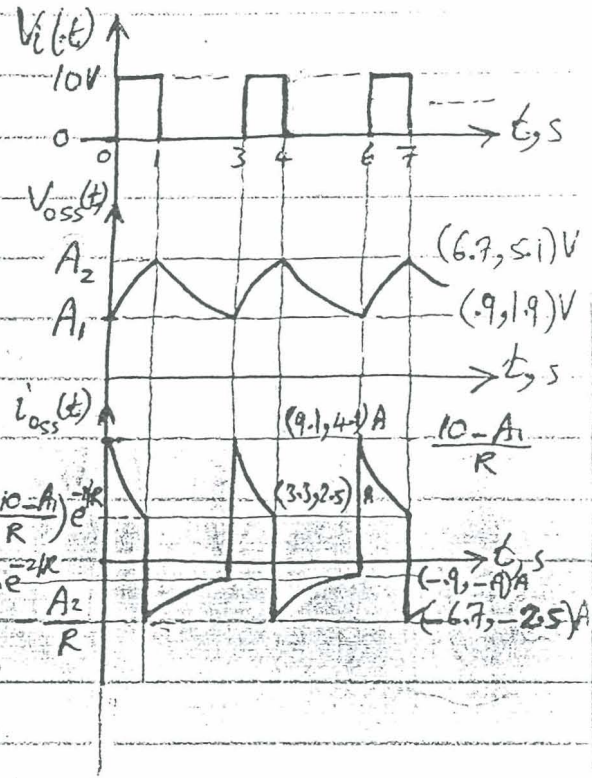 Vi(t)
10V
0
0 1 3 4 6 7 t,s
Voss(t)
A2 (6.7, 5.1)V
A1 (.9, 1.9)V
t,s
ioss(t)
(9.1, 4.1)A 10-A1/R
10-A1/R)e^-1/R (3.3, 2.5)A
t,s
e^-2/R (-.9, -.9)A
A2/R (-6.7, -2.5)A